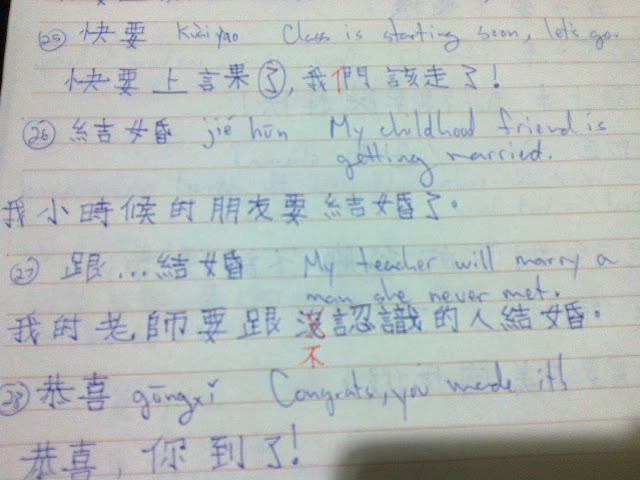 ㉕ 快要 kuài yào Class is starting soon, let's go.
快要上課了, 我們該走了!
㉖ 結婚 jié hūn My childhood friend is
getting married.
我小時候的朋友要結婚了。
㉗ 跟...結婚 My teacher will marry a
man she never met.
我的老師要跟沒認識的人結婚。
不
㉘ 恭喜 gōngxǐ Congrats, you made it!
恭喜, 你到了!